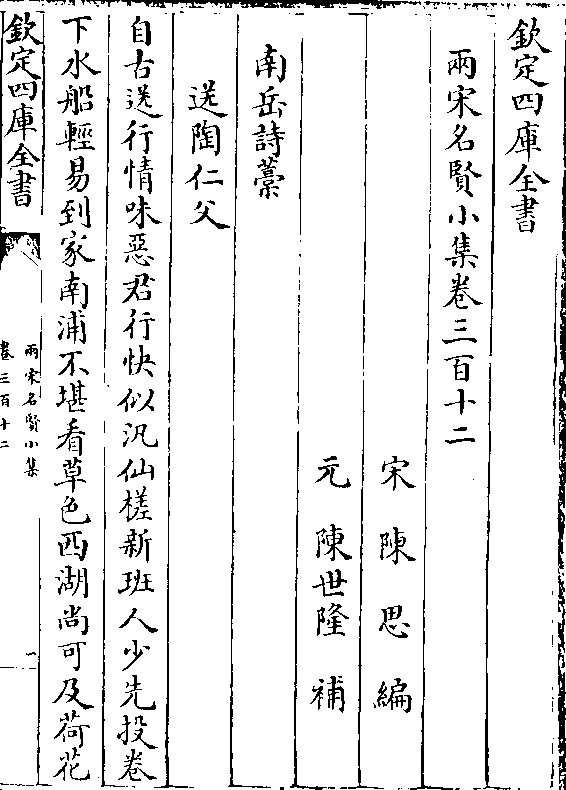 欽定四庫全書
兩宋名賢小集卷三百十二
宋陳思編
元陳世隆補
南岳詩藁
送陶仁父
自古送行情味惡君行快似汎仙槎新班人少先投卷
下水船輕易到家南浦不堪看草色西湖尚可及荷花
欽定四庫全書
兩宋名賢小集
卷三百十二
一